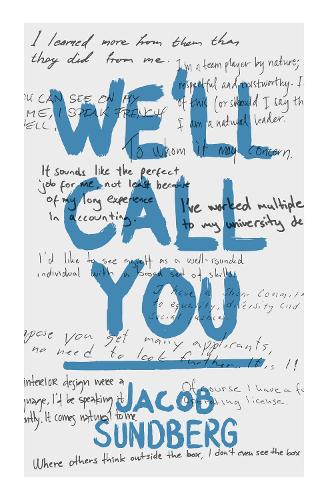 I learned more from them than
they did from me.
I'm a team player by nature;
respectful and trustworthy. I
of this (or should I say th
I am a natural leader.
U CAN SEE ON MY
ME, I SPEAK FRENCH
ELL.
WE'LL
To whom it may concern.
It sounds like the perfect
job for me, not least because
of my long experience
in accounting.
I've worked multiple
to my university de
CALL
I'd like to see myself as a well-rounded
individual with a broad set of skills
I have a strong commitm
to equality, diversity and
social
YOU
pose you get many applicants,
no need to look further. It is I!!
interior design were a
nguage, I'd be speaking it
ently. It comes natural to me.
Of course I have a f
license.
JACOB
SUNDBERG
Where others think outside the box, I don't even see the box